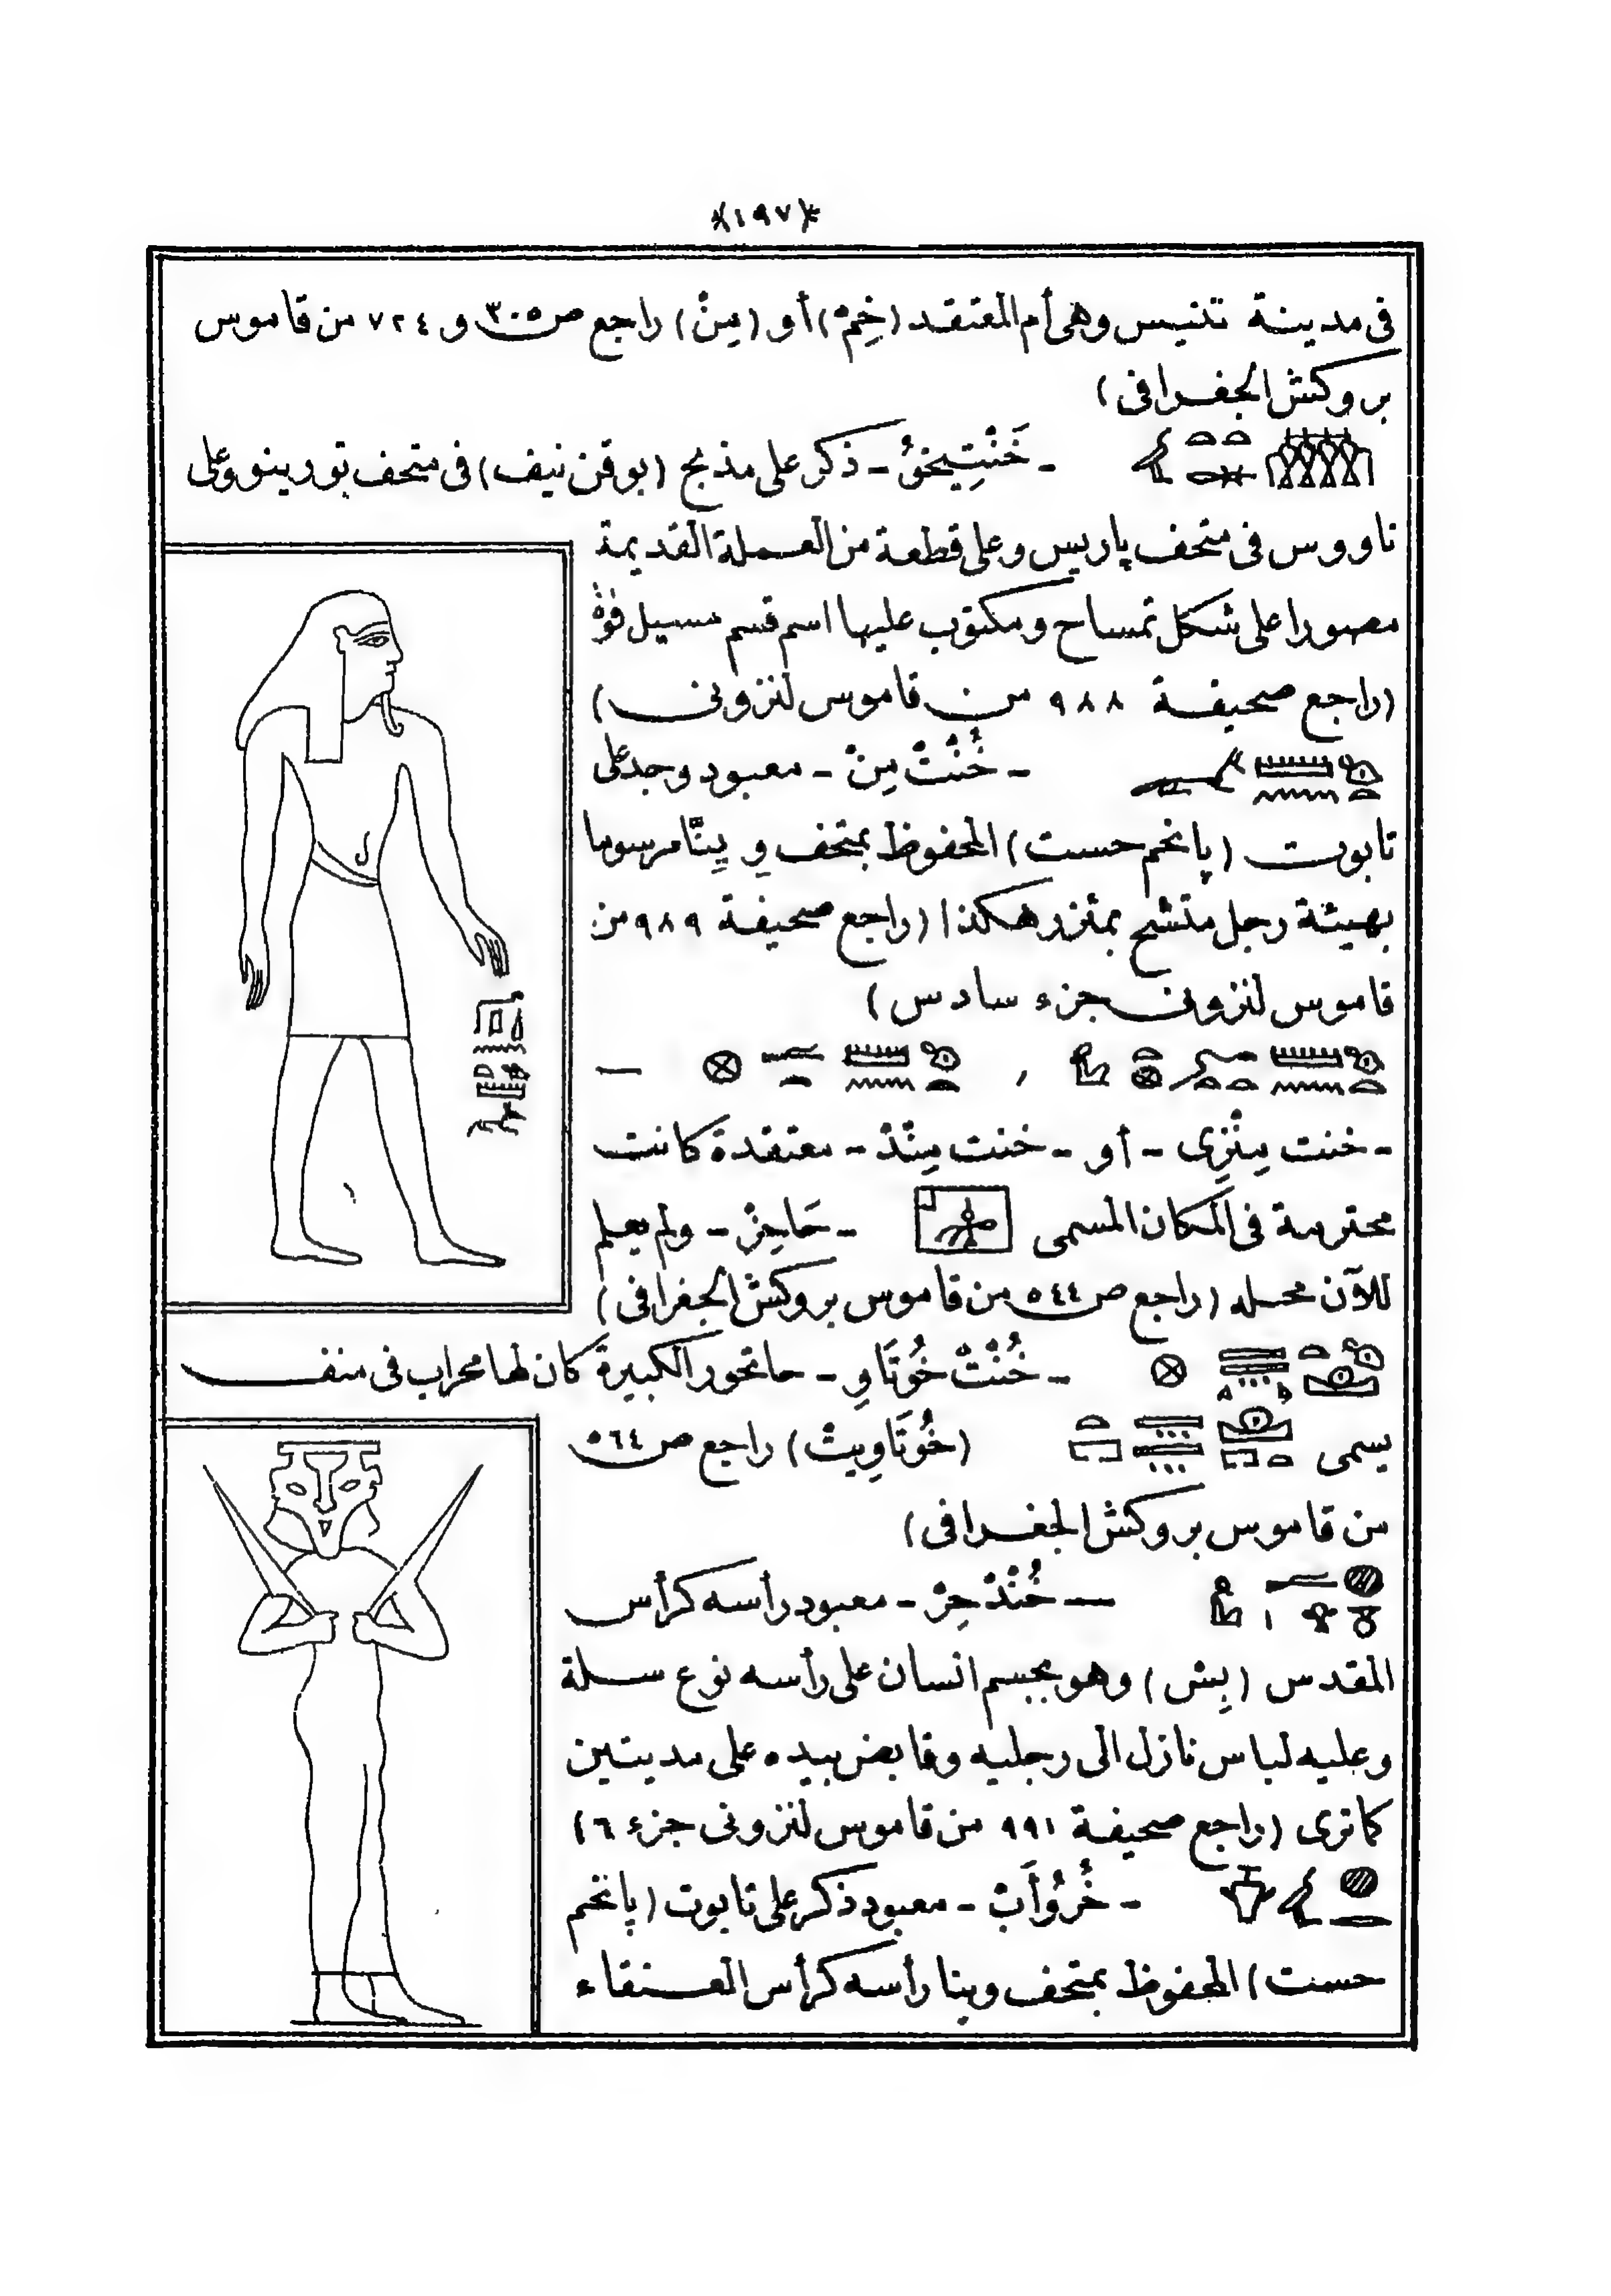 ﴿١٩٧﴾
فى مدينة تنيس وهى أم المعتقد (خِمْ) أو (مِنْ) راجع ص ٣٠٥ و ٧٢٤ من قاموس
بروكش الجغرافى)
ـ خَنْتِيخقُ ـ ذكر على مذبح (بوقرن نيف) فى متحف تورينو وعلى
ناووس فى متحف پاريس وعلى قطعة من العملة القديمة
مصورا على شكل تمساح ومكتوب عليها اسم قسم مسيل فُوَّة
(راجع صحيفة ٩٨٨ من قاموس لنزونى)
ـ خُنْتْ مِنْ ـ معبود وجد على
تابوت (پانخم حست) المحفوظ بمتحف وِيِنَّا مرسوما
بهيئة رجل متشح بمئزر هكذا (راجع صحيفة ٩٨٩ من
قاموس لنزونى جزء سادس)
ـ خنت مِنْزِى ـ أو ـ خنت مِنْدْ ـ معتقدة كانت
محترمة فى المكان المسمى ـ حَاحِزْ ـ ولم يعلم
للآن محله (راجع ص ٥٤٤ من قاموس بروكش الجغرافى)
ـ خُنْتْ خُوتَاوِ ـ حاتحور الكبيرة كان لها محراب فى منف
يسمى (خُوتَاوِيتْ) راجع ص ٥٦٤
من قاموس بروكش الجغرافى)
ـ خُنْدْ حِرْ ـ معبود رأسه كرأس
المقدس (بِس) وهو بجسم انسان على رأسه نوع سلة
وعليه لباس نازل الى رجليه وقابض بيده على مديتين
كما ترى (راجع صحيفة ٩٩١ من قاموس لنزونى جزء ٦)
ـ خُرُوأَبْ ـ معبود ذكر على تابوت (پانخم
حست) المحفوظ بمتحف وينا رأسه كرأس العنقاء